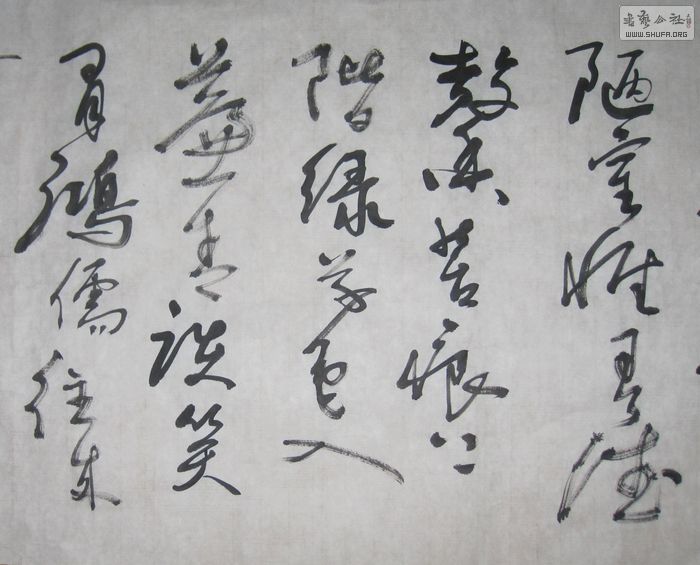 陋室惟吾德
馨苔痕上
階緑草色入
簾青談笑
有鴻儒往来
書藝公社
WWW.SHUFA.ORG